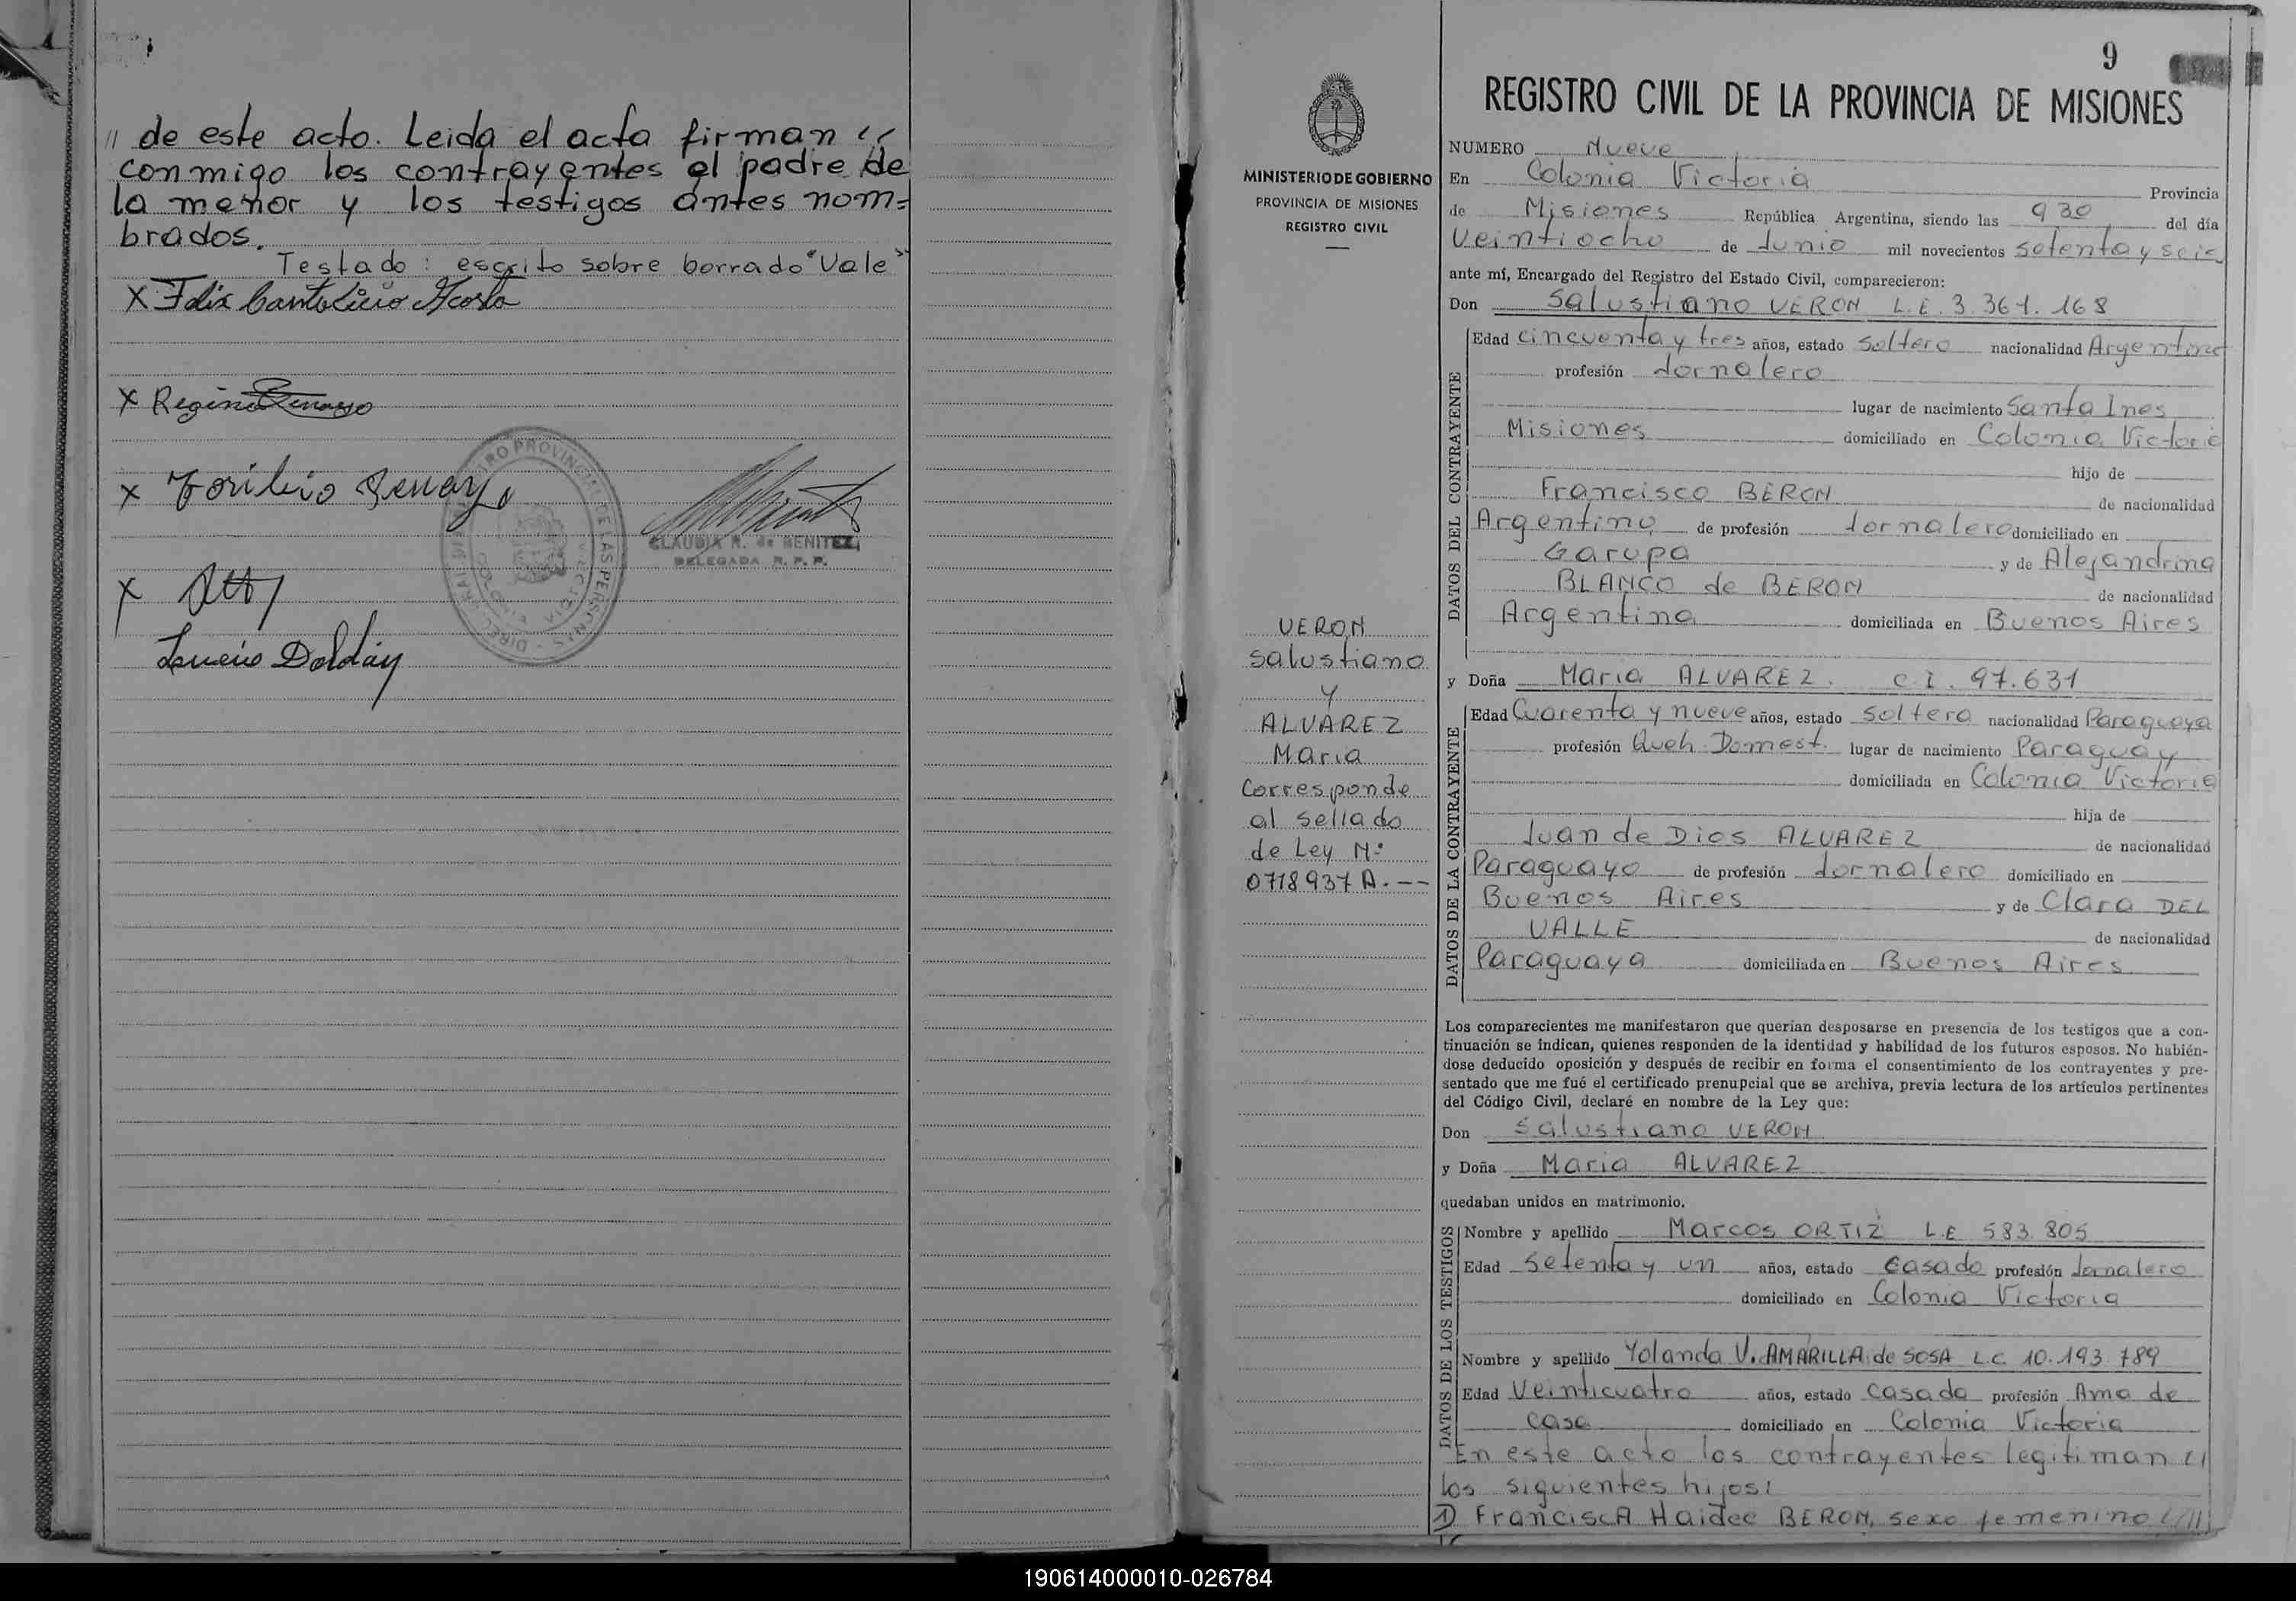 " de este acto. Leida el acta firman "
conmigo los contrayentes el padre de
la menor y los testigos antes nom=
brados.
Testado: escrito sobre borrado "Vale"
X Felix Cantalicio Acosta
X Regina
X Toribio
CLAUDIA R. de BENITEZ
DELEGADA R. P. P.
X
Lucio Doldán
9
REGISTRO CIVIL DE LA PROVINCIA DE MISIONES
MINISTERIO DE GOBIERNO
PROVINCIA DE MISIONES
REGISTRO CIVIL
VERON
Salustiano
y
ALVAREZ
Maria
Corresponde
al sellado
de Ley N°
0718937 A.--
NUMERO Nueve
En Colonia Victoria Provincia
de Misiones República Argentina, siendo las 930 del día
Veintiocho de Junio mil novecientos setenta y seis
ante mí, Encargado del Registro del Estado Civil, comparecieron:
Don Salustiano VERON L.E. 3.361.168
DATOS DEL CONTRAYENTE
Edad cincuenta y tres años, estado soltero nacionalidad Argentino
profesión Jornalero
lugar de nacimiento Santa Ines
Misiones domiciliado en Colonia Victoria
hijo de
Francisco BERON de nacionalidad
Argentino de profesión Jornalero domiciliado en
Garupa y de Alejandrina
BLANCO de BERON de nacionalidad
Argentina domiciliada en Buenos Aires
y Doña Maria ALVAREZ. C I. 97.631
DATOS DE LA CONTRAYENTE
Edad Cuarenta y nueve años, estado soltera nacionalidad Paraguaya
profesión Queh. Domest. lugar de nacimiento Paraguay
domiciliada en Colonia Victoria
hija de
Juan de Dios ALVAREZ de nacionalidad
Paraguayo de profesión Jornalero domiciliado en
Buenos Aires y de Clara DEL
VALLE de nacionalidad
Paraguaya domiciliada en Buenos Aires
Los comparecientes me manifestaron que querían desposarse en presencia de los testigos que a con-
tinuación se indican, quienes responden de la identidad y habilidad de los futuros esposos. No habién-
dose deducido oposición y después de recibir en forma el consentimiento de los contrayentes y pre-
sentado que me fué el certificado prenupcial que se archiva, previa lectura de los artículos pertinentes
del Código Civil, declaré en nombre de la Ley que:
Don Salustiano VERON
y Doña Maria ALVAREZ
quedaban unidos en matrimonio.
DATOS DE LOS TESTIGOS
Nombre y apellido Marcos ORTIZ L.E 583.805
Edad Setenta y un años, estado Casado profesión Jornalero
domiciliado en Colonia Victoria
Nombre y apellido Yolanda V. AMARILLA de SOSA L.C. 10.193.789
Edad Veinticuatro años, estado Casada profesión Ama de
casa domiciliado en Colonia Victoria
En este acto los contrayentes legitiman "
los siguientes hijos:
1) FranciscA Haidee BERON, sexo femenino
190614000010-026784